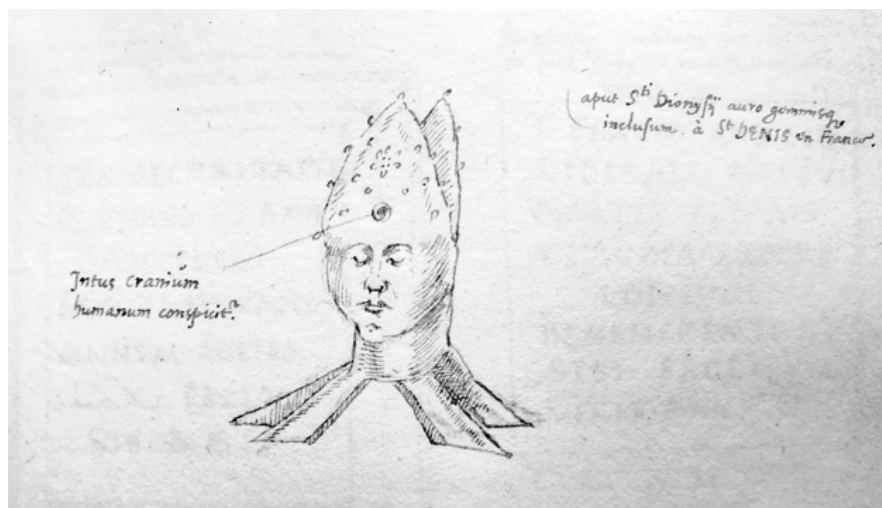 aput Sti Dionysij auro gemmisq
inclusum. à St DENIS en France.
Intus cranium
humanum conspicitr.